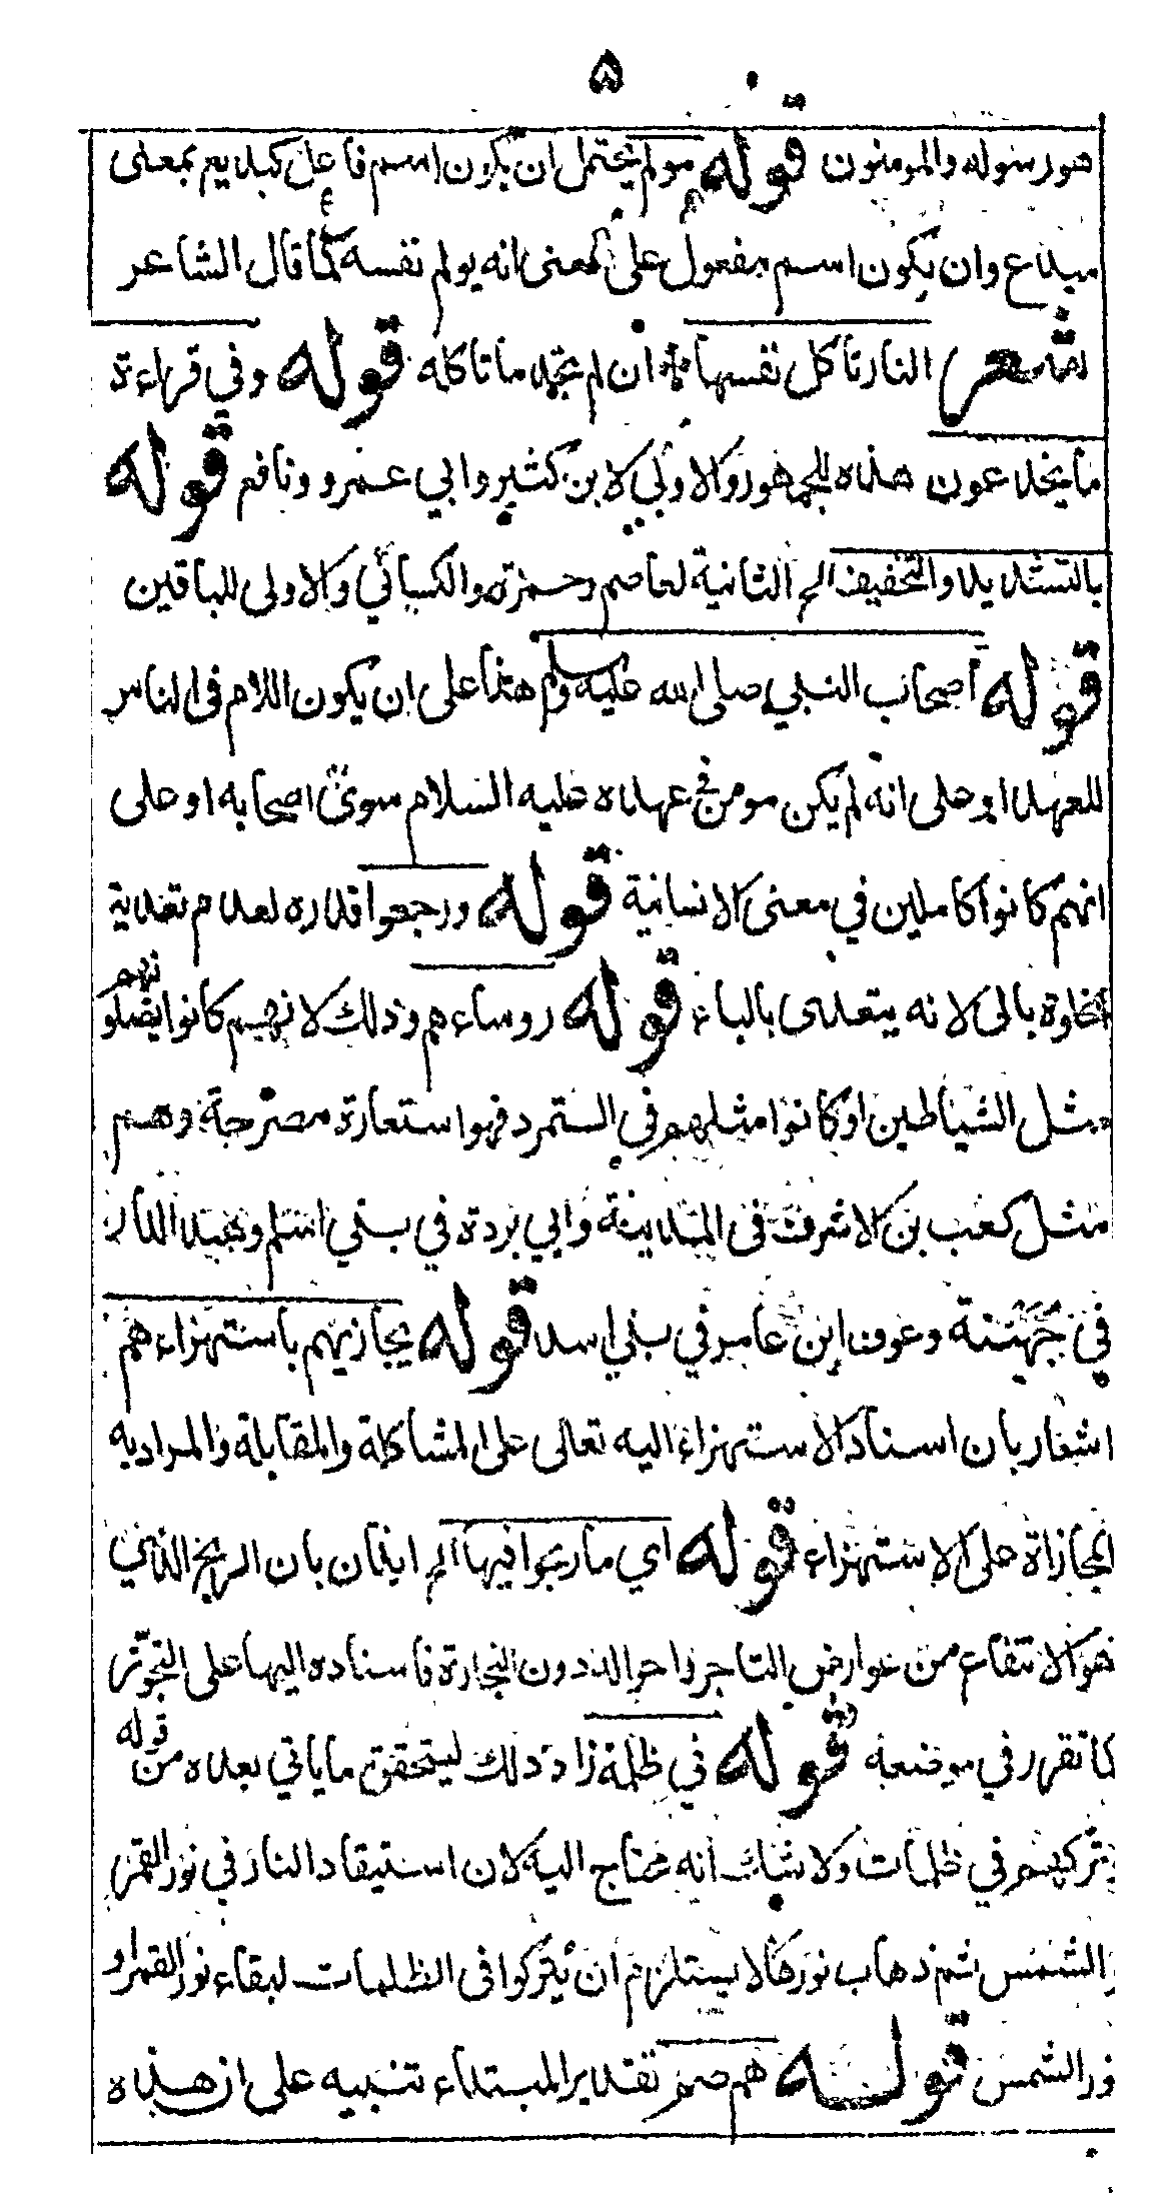 ۵
هو رسوله والمومنون قوله مولم يحتمل ان يكون اسم فاعل كبديع بمعنى
مبدع وان يكون اسم مفعول على معنى انه يولم نفسه كما قال الشاعر
شعر النار تاكل نفسها ان لم تجد ما تاكله قوله وفي قراءة
ما يخدعون هذه للجمهور والاولي لابن كثير وابي عمرو ونافع قوله
بالتشديد والتخفيف الخ الثانية لعاصم وحمزة والكسائي والاولى للباقين
قوله أصحاب النبي صلى الله عليه وسلم هذا على ان يكون اللام فى الناس
للعهد او على انه لم يكن مومن في عهده عليه السلام سوى اصحابه او على
انهم كانوا كاملين في معنى الانسانية قوله ورجعوا قدره لعدم تعدية
الخلوة بالى لانه يتعدى بالباء قوله روساءهم وذلك لانهم كانوا يضلونهم
مثل الشياطين او كانوا مثلهم في التمرد فهو استعارة مصرحة وهم
مثل كعب بن الاشرف فى المدينة وابي بردة في بني اسلم وعبد الدار
في جُهَيْنة وعوف ابن عامر في بني اسد قوله يجازيهم باستهزاءهم
اشعار بان اسناد الاستهزاء اليه تعالى على المشاكلة والمقابلة والمراد به
المجازاة على الاستهزاء قوله اي ما ربحوا فيها الخ ايذان بان الربح الذي
هو الانتفاع من عوارض التاجر واحواله دون التجارة فاسناده اليها على التجوّز
كما تقرر في موضعه قوله في ظلمة زاد ذلك ليتحقق ما ياتي بعده من قوله
وتركهم في ظلمات ولا شك انه محتاج اليه لان استيقاد النار في نور القمر
والشمس ثم ذهاب نورها لا يستلزم ان يُتركوا فى الظلمات لبقاء نور القمر او
نور الشمس قوله هم صم تقدير المبتداء تنبيه على ان هذه